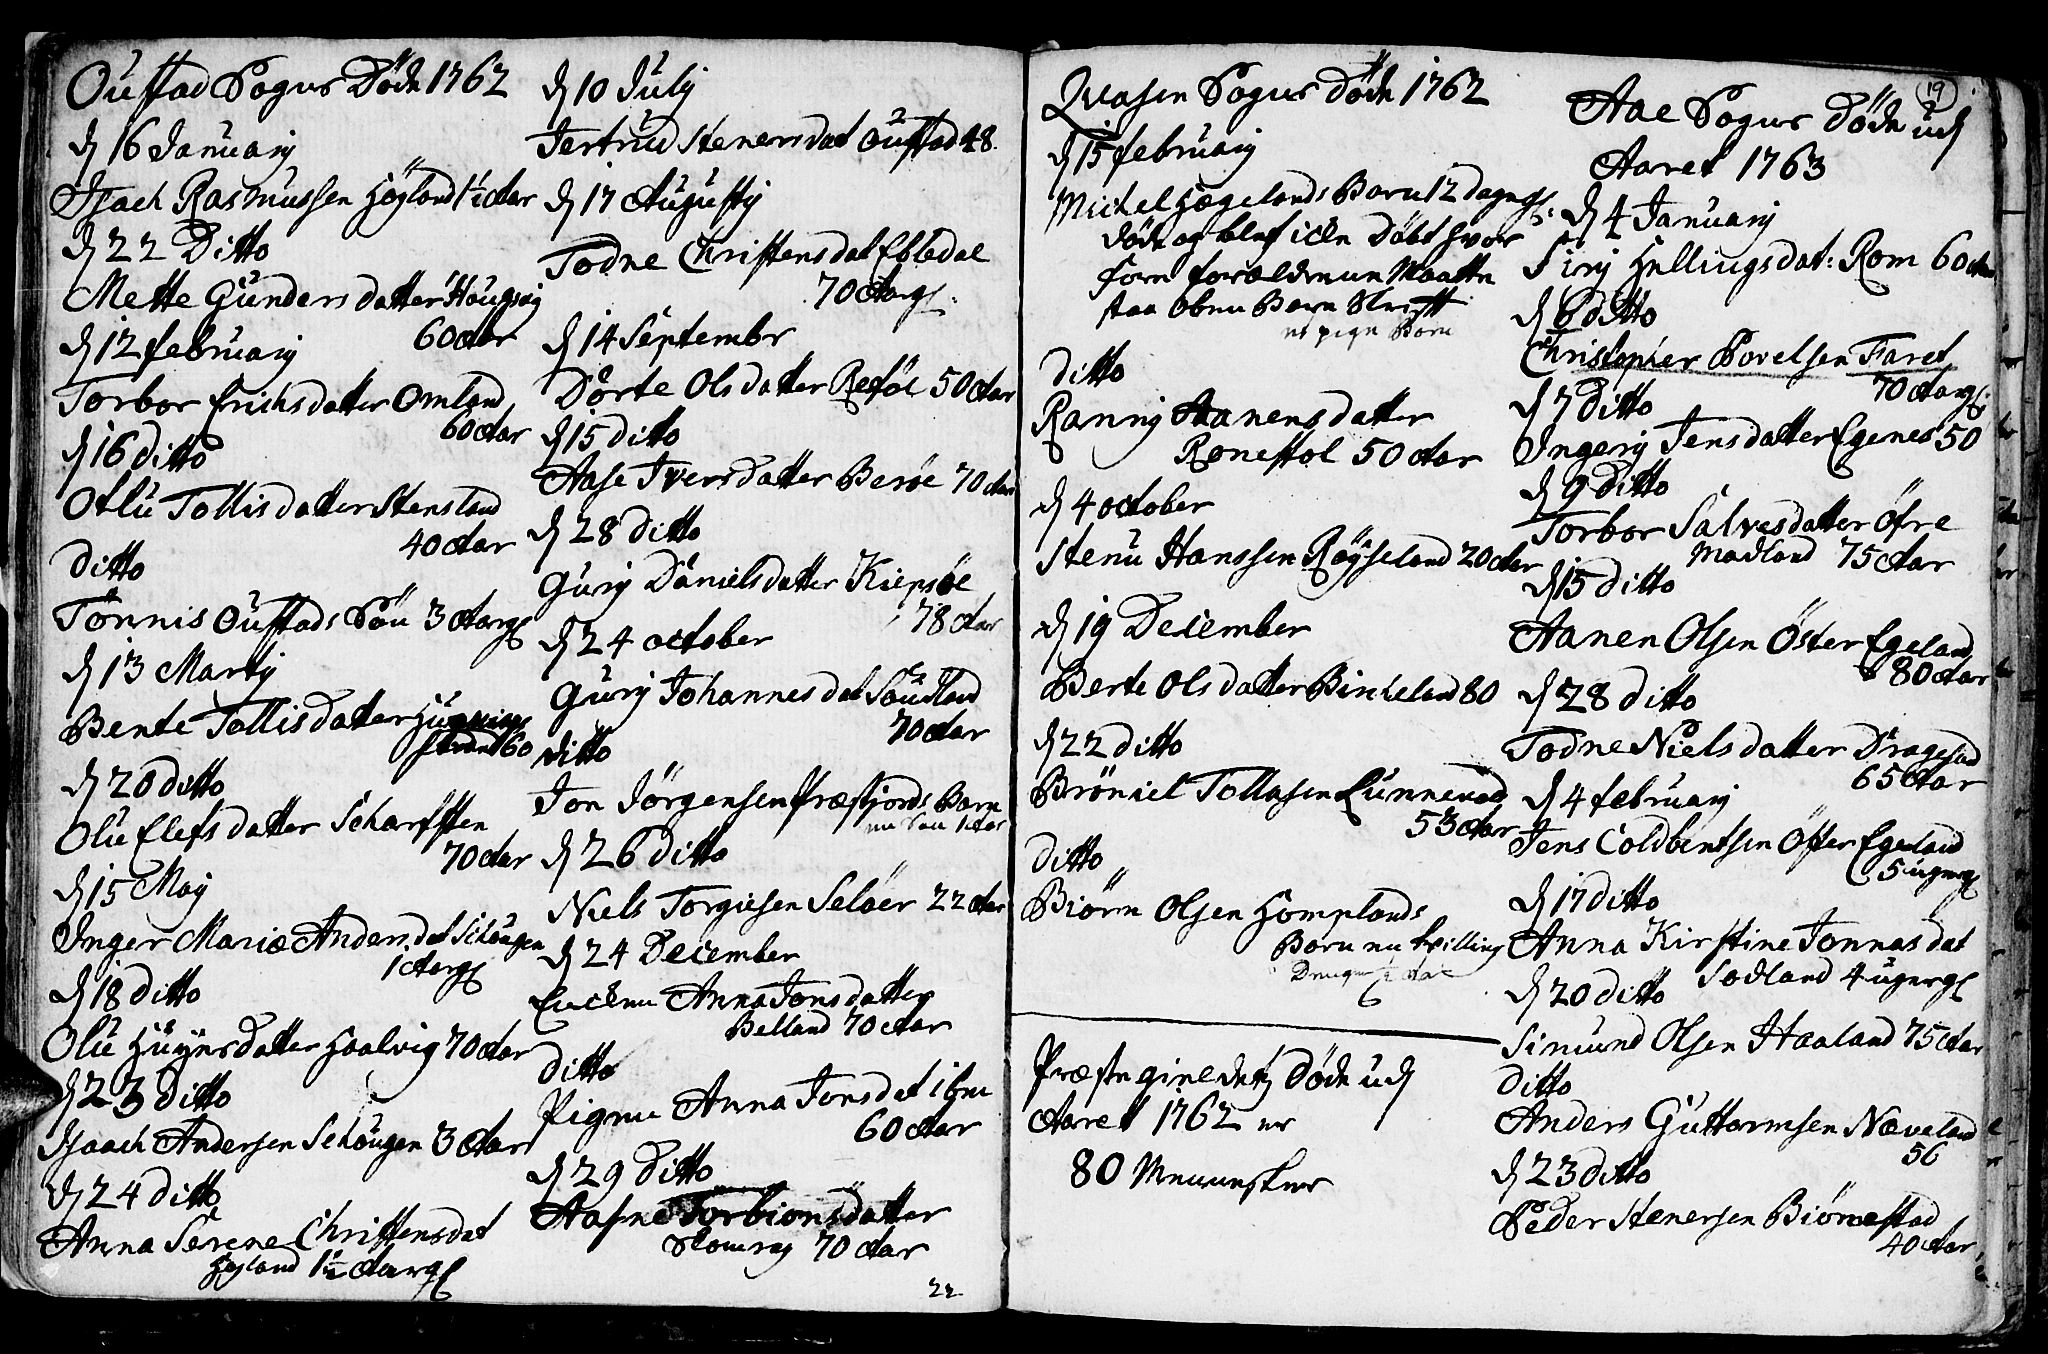 Oufstad Sogns Döde 1762
d 16 Januarij
Isach Rasmussen Høyland 1½ Aar
d 22 Ditto
Mette Gunders datter Hougvig
60 Aar
d 12 februarij
Torbor Erichsdatter Omland
60 Aar
d 16 ditto
Otlu Tollisdatter Stensland
40 Aar
ditto
Tönnis Oufstads Sön 3 Aarg
d 13 Martij
Bente Tollisdatter
60
d 20 ditto
Olu Elefsdatter Scharpsten
70 Aar
d 15 Maij
Inger Maria Anders dat Schougen
1 Aarg
d 18 ditto
Olu Huynsdatter Haalvig 70 Aar
d 23 ditto
Isaach Andersen Schougen 3 Aar
d 24 ditto
Anna Serene Christensdat
Høyland 1½ Aarg
d 10 Julij
Jertrud Stenersdat Oufstad 48.
d 17 Augustij
Todne Christensdat Ebledal
70 Aarg.
d 14 Septembr
Dorte Olsdatter Refsøl 50 Aar
d 15 ditto
Aase Iversdatter Berøe 70 Aar
d 28 ditto
Gurij Danielsdatter Kiepsøe
78 Aar
d 24 october
Gurij Johannesdat Soudland
70 Aar
ditto
Jon Jörgensen Præstjords Barn
en Søn 1 Aar
d 26 ditto
Niels Torgiesen Seløer 22 Aar
d 24 December
Anna Jonsdatter
Belland 70 Aar
ditto
Pigen Anna Jonsdat ibm
60 Aar
d 29 ditto
Aasne Torbiønsdatter
70 Aar
22
Qvasen Sogns Döde 1762
d 15 februarij
Michel Hægelands Barn 12 dage gl.
døde og blef icke Döbt hvor
fore forældrene Maatte
staa obne Bare Skrifft
et pige Barn
ditto
Rannij Aanensdatter
Ronestol 50 Aar
d 4 october
Stenu Hanssen Röysseland 20 Aar
d 19 December
Berte Olsdatter Birkeland 80
d 22 ditto
Bröniel Tollasen Lunnevad
53 Aar
ditto
Biörn Olsen Homplands
Barn en tvilling
Dreng ½ Aar
Præstegieldetz Döde udj
Aaret 1762 er
80 Mennesker
19
Aae Sogns Döde udj
Aaret 1763
d 4 Januarij
Sirij Hellingsdat: Rom 60 Aar
d 6 ditto
Christopher Povelsen Faret
70 Aarg.
d 7 ditto
Ingerij Jensdatter Egenes 50
d 9 ditto
Torbor Salvesdatter Öfre
Madland 75 Aar
d 15 ditto
Aanen Olsen Öster Egeland
80 Aar
d 28 ditto
Todne Nielsdatter Drageland
65 Aar
d 4 februarij
Jens Coldbentsen Öster Egeland
5 uger gl
d 17 ditto
Anna Kirstine Jonnasdat
Sodland 4 uger gl
d 20 ditto
Simund Olsen Haaland 75 Aar
ditto
Anders Guttormsen Næveland
56
d 23 ditto
Peder Stenersen Biörnestad
40 Aar